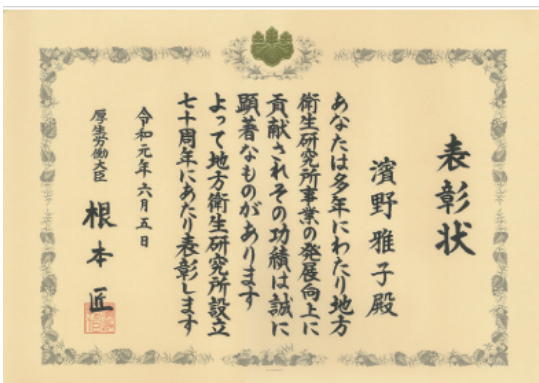 表彰状
濱野雅子殿
あなたは多年にわたり地方
衛生研究所事業の発展向上に
貢献されその功績は誠に
顕著なものがあります
よって地方衛生研究所設立
七十周年にあたり表彰します
令和元年六月五日
厚生労働大臣 根本匠